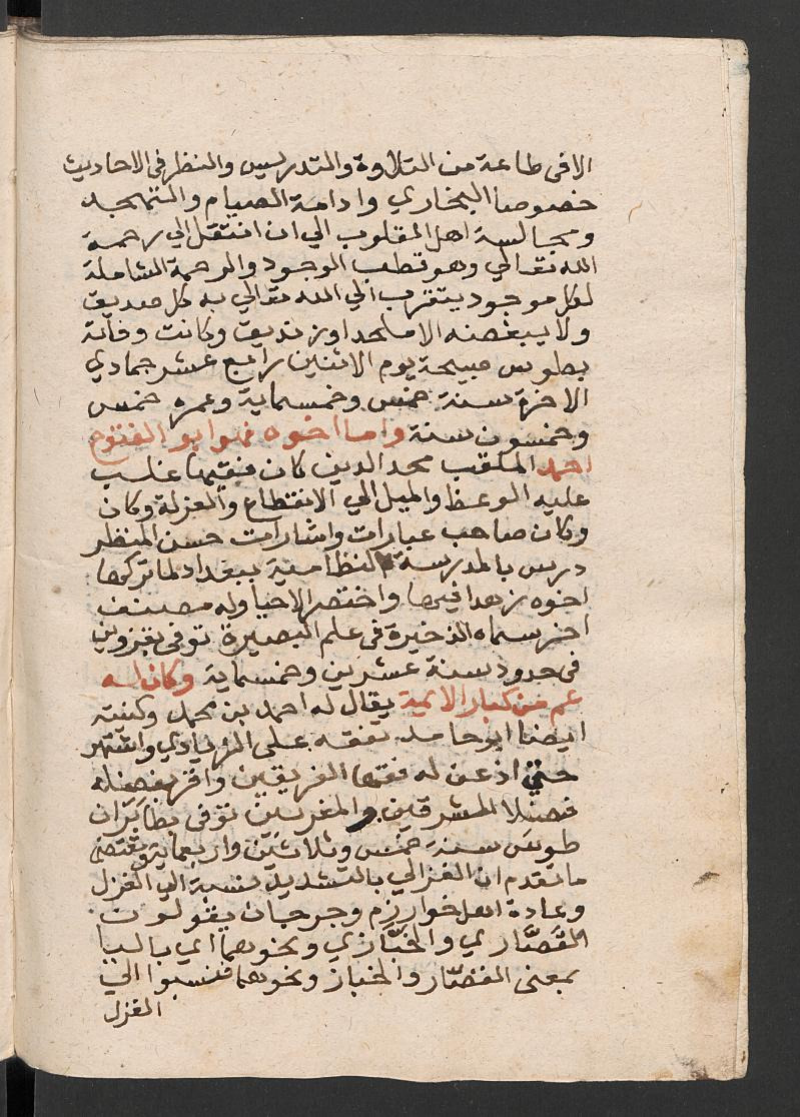 الا فى طاعة من التلاوة والتدريس والنظر فى الاحاديث
خصوصا البخاري وادامة الصيام والتهجد
ومجالسة اهل القلوب الي ان انتقل الي رحمة
الله تعالي وهو قطب الوجود والرحمة الشاملة
لكل موجود يتقرب الي الله تعالي به كل صديق
ولا يبغضه الا ملحد او زنديق وكانت وفاته
بطوس صبيحة يوم الاثنين رابع عشر جمادي
الاخرة سنة خمس وخمسماية وعمره خمس
وخمسون سنة واما اخوه فهو ابو الفتوح
احمد الملقب مجد الدين كان فقيها غلب
عليه الوعظ والميل الي الانقطاع والعزلة وكان
وكان صاحب عبارات واشارات حسن المنظر
درس بالمدرسة النظامية ببغداد لما تركها
اخوه زهدا فيها واختصر الاحيا وله مصنف
اخر سماه الذخيرة فى علم البصيرة توفى بقزوين
فى حدود سنة عشرين وخمسماية وكان له
عم من كبار الايمة يقال له احمد بن محمد وكنيته
ايضا ابو حامد تفقه على الزيادي واشتهر
حتي اذعن له فقها الفريقين واقر بفضله
فضلا المشرقين والمغربين توفى بطابران
طوس سنة خمس وثلاثين واربعماية ويقتضى
ما تقدم ان الغزالي بالتشديد نسبة الي الغزل
وعادة اهل خوارزم وجرجان يقولون
القَصَّاري والخَبَّازي ونحوهما اي باليا
بمعنى القصّار والخباز ونحوهما فنسبوا الي
الغزل